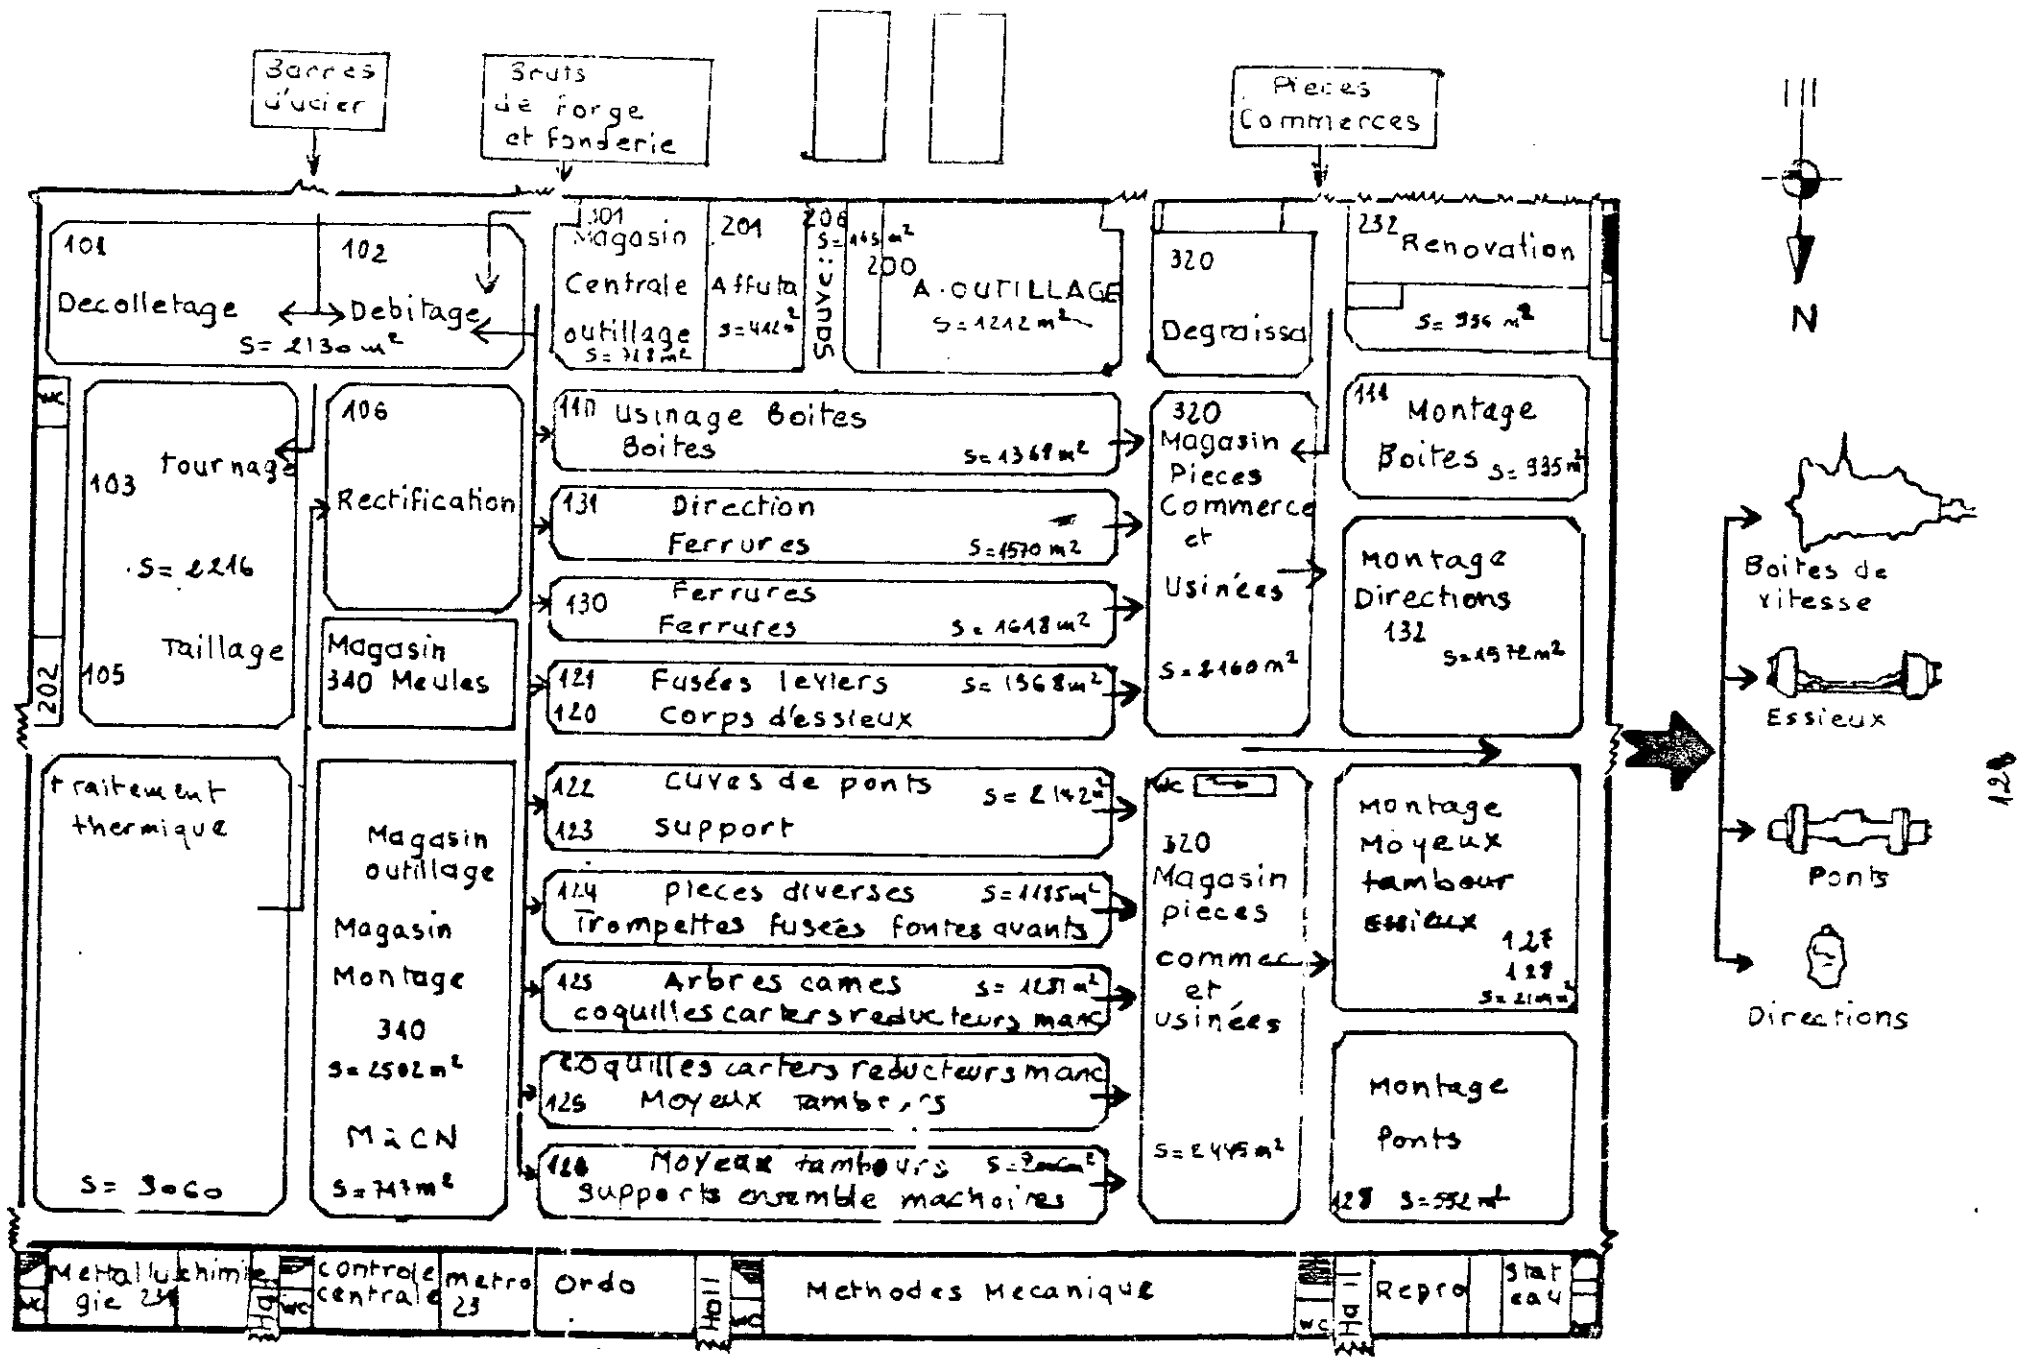 Barres
d'acier
Bruts
de forge
et fonderie
Pieces
Commerces
N
101
102
Decolletage
Debitage
S= 2130 m²
301
Magasin
Centrale
outillage
S= 718 m²
201
Affuta
S=412 m²
206
S= 165 m²
200
A. OUTILLAGE
S=1212 m²
320
Degraissa
232
Renovation
S= 936 m²
WC
103
tournage
S= 2216
Taillage
105
202
106
Rectification
Magasin
340 Meules
110 usinage Boites
Boites
S= 1368 m²
131
Direction
Ferrures
S=1570 m²
130
Ferrures
Ferrures
S= 1618 m²
121
Fusées leviers
S= 1368 m²
120
Corps d'essieux
320
Magasin
Pieces
Commerce
et
Usinées
S=2160 m²
111
Montage
Boites
S= 935 m²
Montage
Directions
132
S=1972 m²
Boites de
vitesse
Essieux
Ponts
Directions
128
traitement
thermique
S= 3060
Magasin
outillage
Magasin
Montage
340
S= 2502 m²
M à CN
S= 747 m²
122
cuves de ponts
S= 2142 m²
123
support
124
pieces diverses
S=1185 m²
Trompettes fusées fontes avants
125
Arbres cames
coquilles carters reducteurs manc
coquilles carters reducteurs manc
125
Moyeux Tambours
126
Moyeux tambours
supports ensemble machoires
WC
320
Magasin
pieces
commec
et
usinées
S= 2445 m²
Montage
Moyeux
tambour
Essieux
127
128
Montage
Ponts
128
S=552 m²
Mettallu
gie 23
chimie
Hall
WC
controle
centrale
metro
23
Ordo
Hall
Methodes Mecanique
WC
Hall
Repro